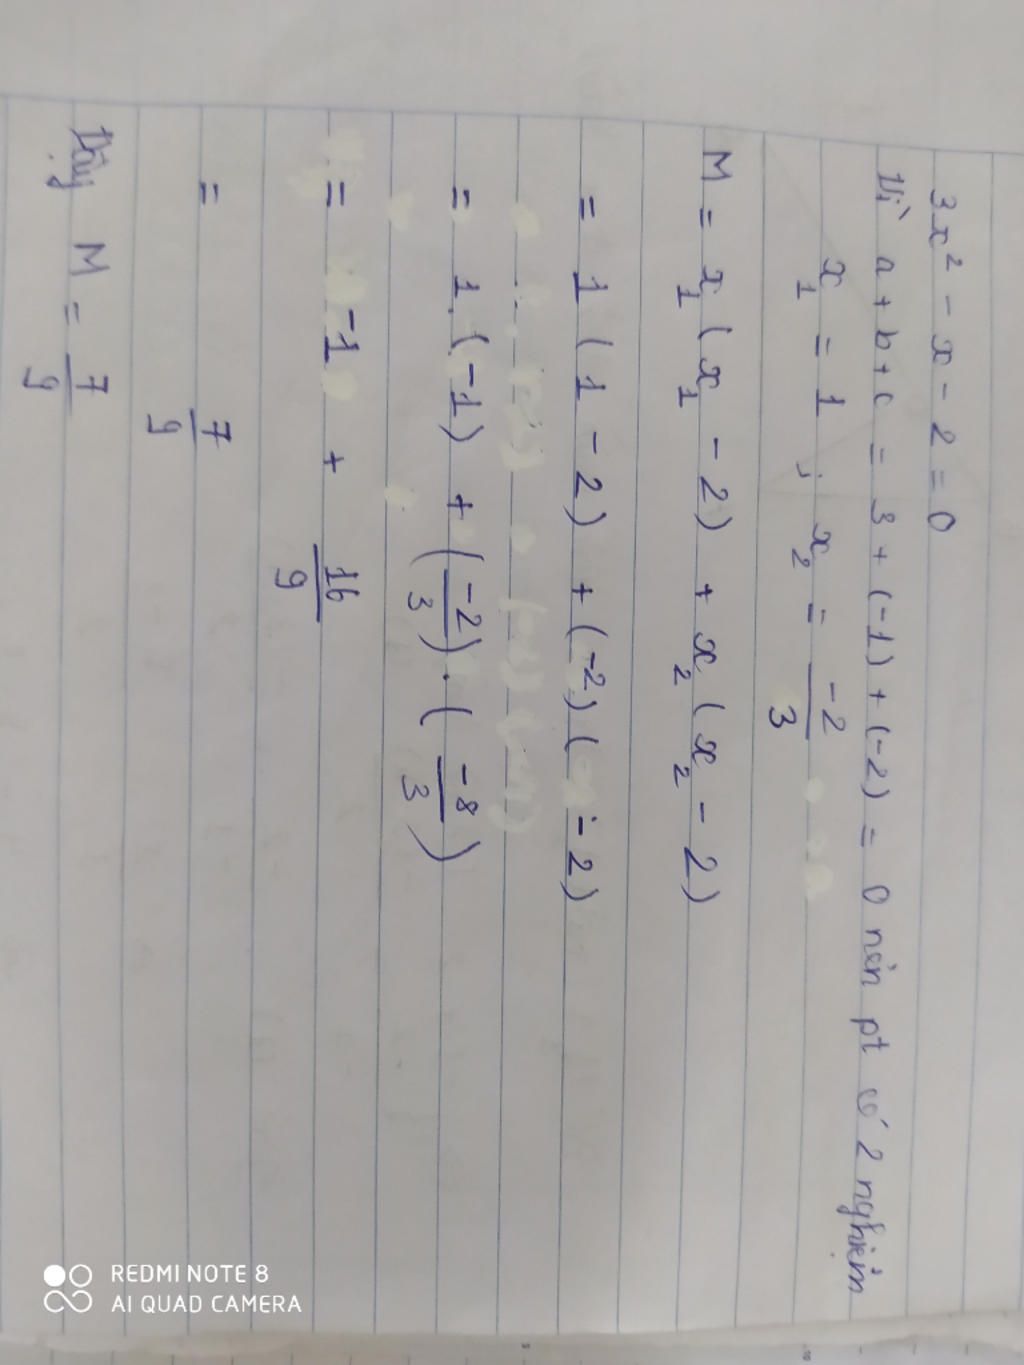 3x² - x - 2 = 0
Vì a + b + c = 3 + (-1) + (-2) = 0 nên pt có 2 nghiệm
x₁ = 1 ; x₂ = -2/3
M = x₁ (x₁ - 2) + x₂ (x₂ - 2)
= 1 (1 - 2) + (-2) ( - 2)
= 1. (-1) + (-2/3) . (-8/3)
= -1 + 16/9
= 7/9
Vậy M = 7/9
REDMI NOTE 8
AI QUAD CAMERA